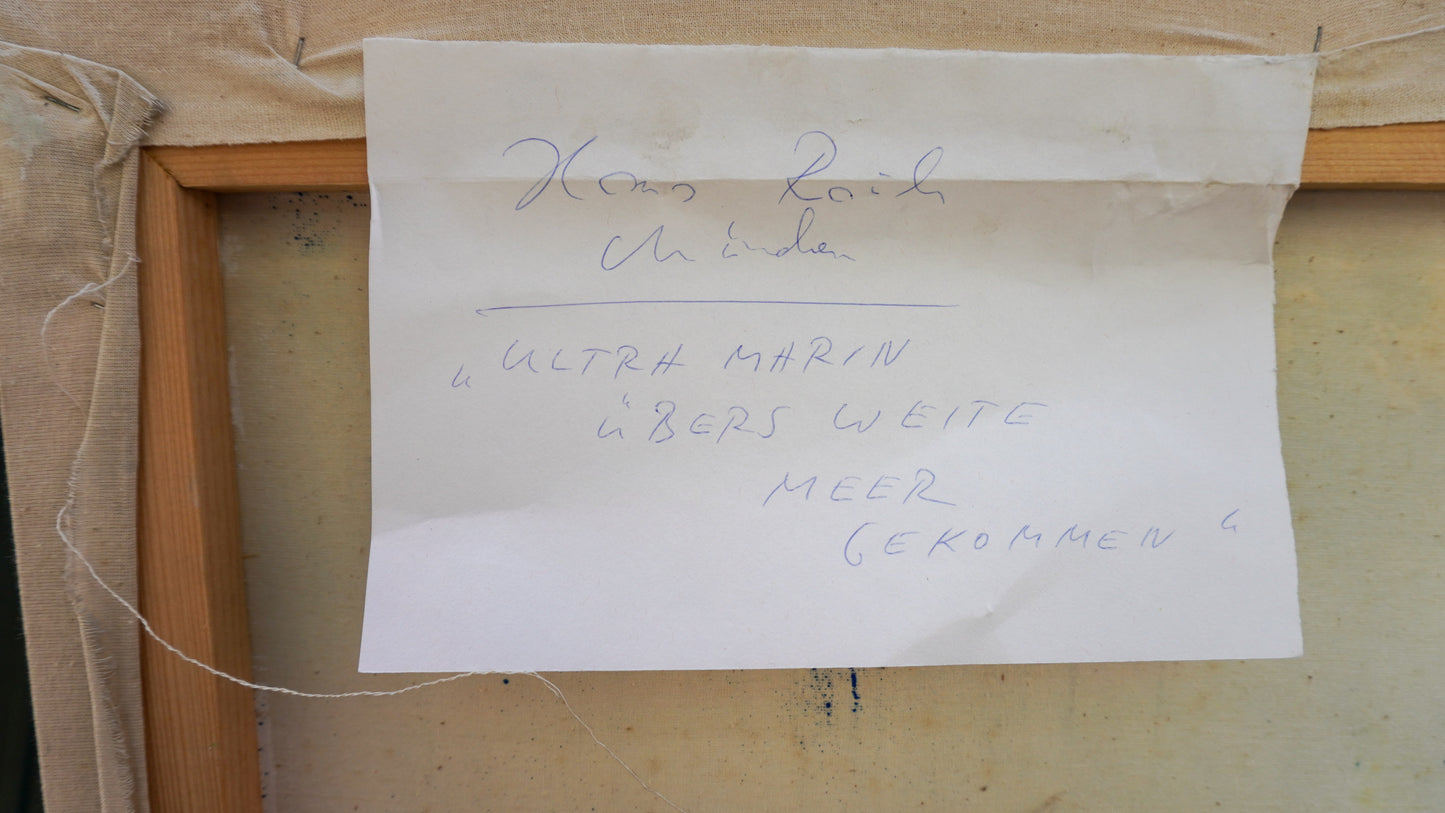 Hans
München
„ULTRA MARIN
ÜBERS WEITE
MEER
GEKOMMEN“